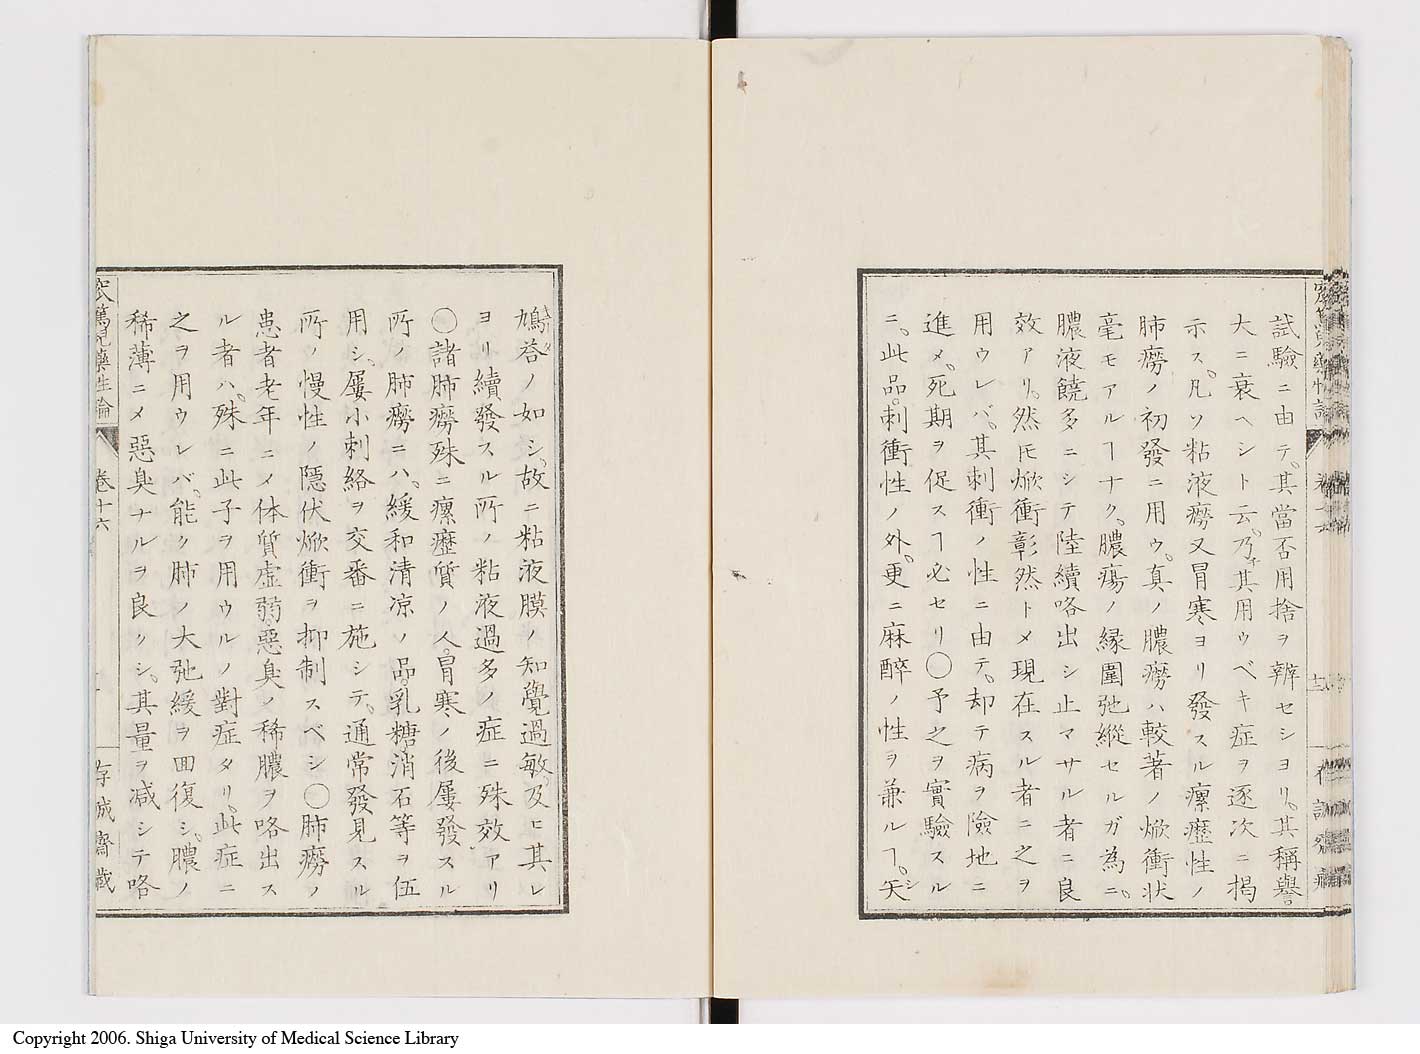 試驗ニ由テ。其當否用捨ヲ辨セシヨリ。其稱譽
大ニ衰ヘシト云。乃其用ウベキ症ヲ逐次ニ掲
示ス。凡ソ粘液癆又冒寒ヨリ發スル瘰癧性ノ
肺癆ノ初發ニ用ウ。真ノ膿癆ハ較著ノ焮衝状
毫モアルヿナク。膿瘍ノ縁圍弛縱セルガ為ニ。
膿液饒多ニシテ陸續咯出シ止マサル者ニ良
效アリ。然𪜈焮衝彰然トメ現在スル者ニ之ヲ
用ウレバ。其刺衝ノ性ニ由テ。却テ病ヲ險地ニ
進メ。死期ヲ促スヿ必セリ〇予之ヲ實驗スル
ニ。此品。刺衝性ノ外。更ニ麻醉ノ性ヲ兼ルヿ。矢
鳩荅ノ如シ。故ニ粘液膜ノ知覺過敏。及ヒ其レ
ヨリ續發スル所ノ粘液過多ノ症ニ殊效アリ
〇諸肺癆殊ニ瘰癧質ノ人。冒寒ノ後屢發スル
所ノ肺癆ニハ。緩和清凉ノ品。乳糖消石等ヲ伍
用シ。屢小刺絡ヲ交番ニ施シテ。通常發見スル
所ノ慢性ノ隱伏焮衝ヲ抑制スベシ〇肺癆ノ
患者老年ニメ体質虚弱。惡臭ノ稀膿ヲ咯出ス
ル者ハ。殊ニ此子ヲ用ウルノ對症タリ。此症ニ
之ヲ用ウレバ。能ク肺ノ大弛緩ヲ囬復シ。膿ノ
稀薄ニメ惡臭ナルヲ良クシ。其量ヲ减シテ咯
篤兒藥性論 卷十六 存誠齋藏
Copyright 2006. Shiga University of Medical Science Library